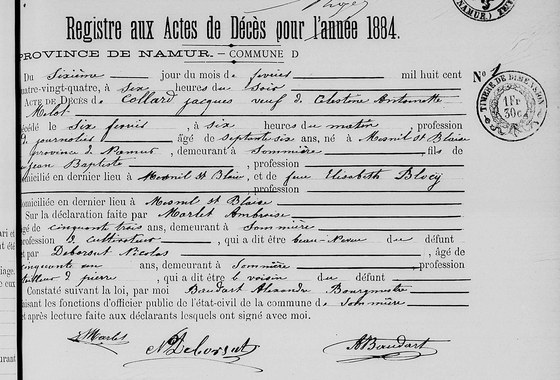 Registre aux Actes de Décès pour l'année 1884.
PROVINCE DE NAMUR. — COMMUNE D
Du Sixième jour du mois de février mil huit cent
quatre-vingt-quatre, à six heures du Soir
N° 1
TIMBRE DE DIMENSION
1 Fr
30c
ACTE DE DÉCÈS de Collard jacques veuf de Celestine Antoinette
Melot
décédé le six fevrier, à six heures du matin, profession
d journalier, âgé de septante six ans, né à Mesnil St Blaise
province de Namur, demeurant à Sommière fils de
jean Baptiste, profession
domicilié en dernier lieu à Mesnil St Blaise, et de feue Elisabeth Blocq
profession
domiciliée en dernier lieu à Mesnil St Blaise
Sur la déclaration faite par Marlet Ambroise
âgé de cinquante trois ans, demeurant à Sommière
profession d cultivateur, qui a dit être beau-neveu du défunt
et par Deborsut Nicolas, âgé de
cinquante un ans, demeurant à Sommière, profession
de tailleur d pierre, qui a dit être le voisin du défunt
Constaté suivant la loi, par moi Baudart Alexandre Bourgmestre
faisant les fonctions d'officier public de l'état-civil de la commune de Sommière
et après lecture faite aux déclarants lesquels ont signé avec moi.
Marlet
N Deborsut
A Baudart